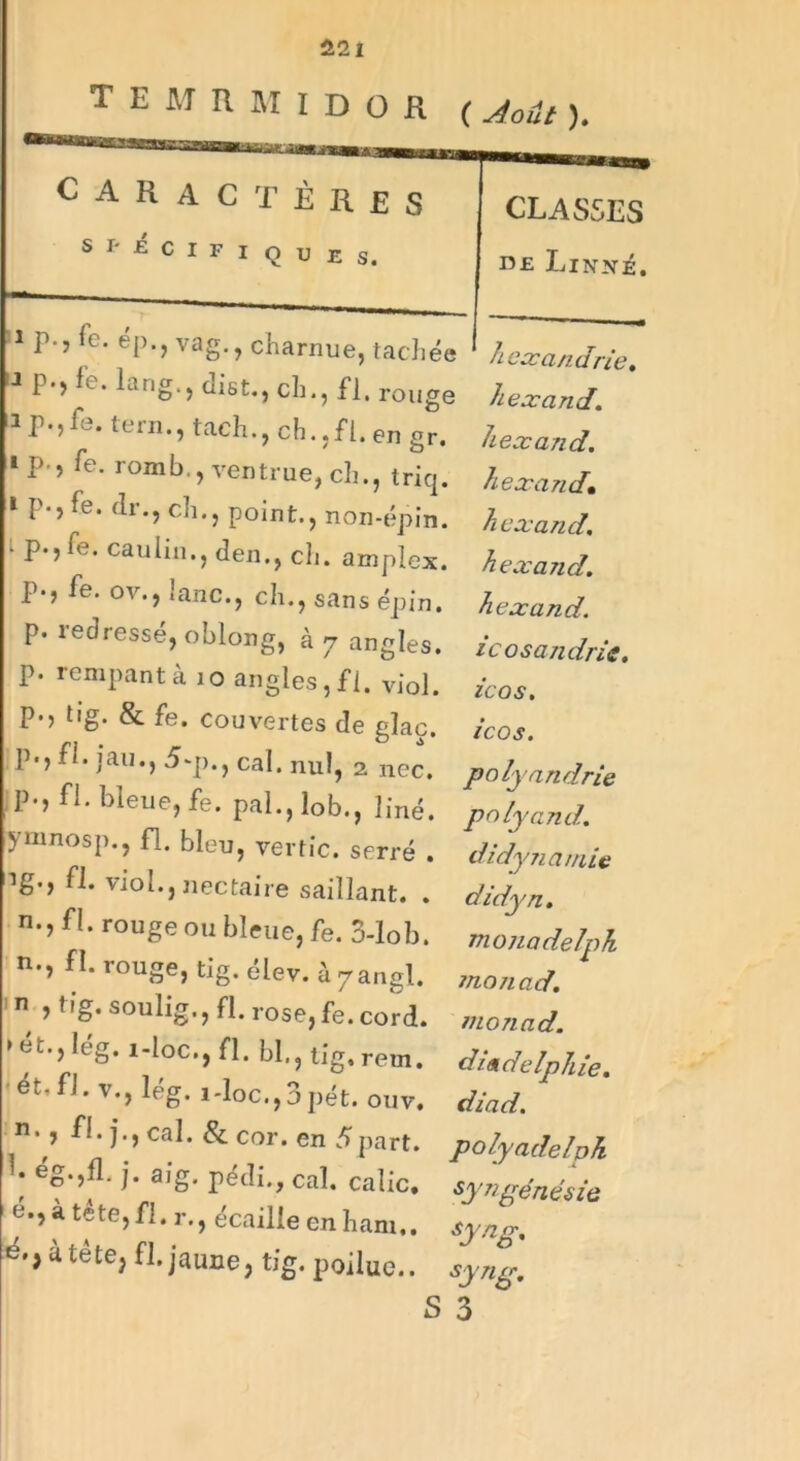 221
TEMRMIDOR ( Août ).
CARACTÈRES
SPÉCIFIQUES.
CLASSES
DE LINNÉ.
1 p., fe. ép., vag., charnue, tachée hexandrie.
1 p., fe. lang., dist., ch., fl. rouge hexand.
1 p., fe. tern., tach., ch., fl. en gr. hexand.
1 p., fe. romb., ventrue, ch., triq. hexand.
1 p., fe. dr., ch., point., non-épin. hexand.
p., fe. caulin., den., ch. amplex. hexand.
p., fe. ov., lanc., ch., sans épin. hexand.
p. redressé, oblong, à 7 angles. icosandrie.
p. rempant à 10 angles, fl. viol. icos.
p., tig. & fe. couvertes de glaç. icos.
p., fl. jau., 5-p., cal. nul, 2 nec. polyandrie
p., fl. bleue, fe. pal., lob., liné. polyand.
ymnosp., fl. bleu, vertic. serré . didynamie
ig., fl. viol., nectaire saillant. . didyn.
n., fl. rouge ou bleue, fe. 3-lob. monadelph
n., fl. rouge, tig. élev. à 7 angl. monad.
n , tig. soulig., fl. rose, fe. cord. monad.
ét., lég. 1-loc., fl. bl., tig. rem. diadelphie.
ét. fl. v., lég. 1-loc., 3 pét. ouv. diad.
n., fl. j., cal. & cor. en 5 part. polyadelph
l. ég., fl. j. aig. pédi., cal. calic. syngénésie
é., à tête, fl. r., écaille en ham.. syng.
é., à tête, fl. jaune, tig. poilue.. syng.
S 3